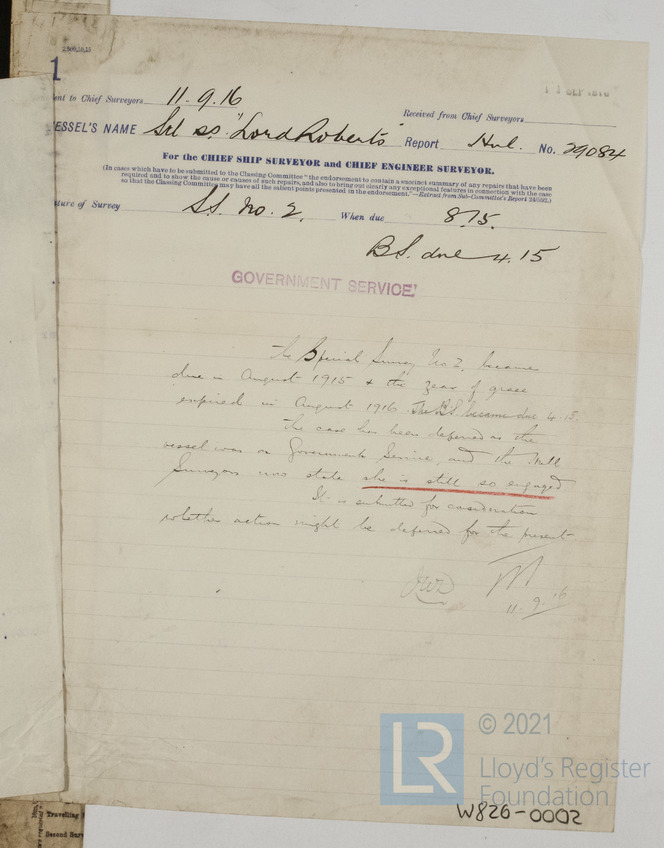 2,500,10,15
1
ent to Chief Surveyors 11.9.16
SEP 1916
Received from Chief Surveyors
VESSEL'S NAME Stl ss. "Lord Roberts" Report Hul. No. 29084
For the CHIEF SHIP SURVEYOR and CHIEF ENGINEER SURVEYOR.
(In cases which have to be submitted to the Classing Committee "the endorsement to contain a succinct summary of any repairs that have been
required and to show the cause or causes of such repairs, and also to bring out clearly any exceptional features in connection with the case
so that the Classing Committee may have all the salient points presented in the endorsement."—Extract from Sub-Committee's Report
ture of Survey S.S. No. 2. When due 8.15.
B.S. due 4.15
GOVERNMENT SERVICE
The Special Survey No 2, became
due in August 1915 & the year of grace
expired in August 1916. The B.S. became due 4.15.
The case has been deferred as the
vessel was on Government Service, and the Hull
Surveyors now state she is still so engaged
It is submitted for consideration
whether action might be deferred for the present
11.9.16
LR
© 2021
Lloyd's Register
Foundation
W826-0002
Travelling
Second Surv